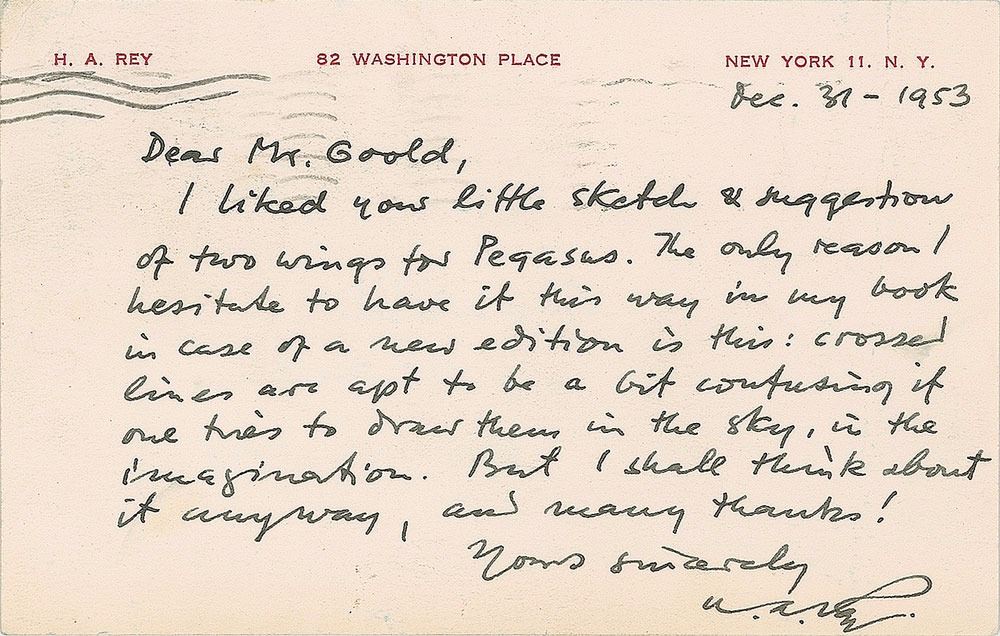 H. A. REY 82 WASHINGTON PLACE NEW YORK 11. N. Y.
Dec. 31 - 1953
Dear Mr. Goold,
I liked your little sketch & suggestion
of two wings for Pegasus. The only reason I
hesitate to have it this way in my book
in case of a new edition is this: crossed
lines are apt to be a bit confusing if
one tries to draw them in the sky, in the
imagination. But I shall think about
it anyway, and many thanks!
Yours sincerely
H. A. Rey.